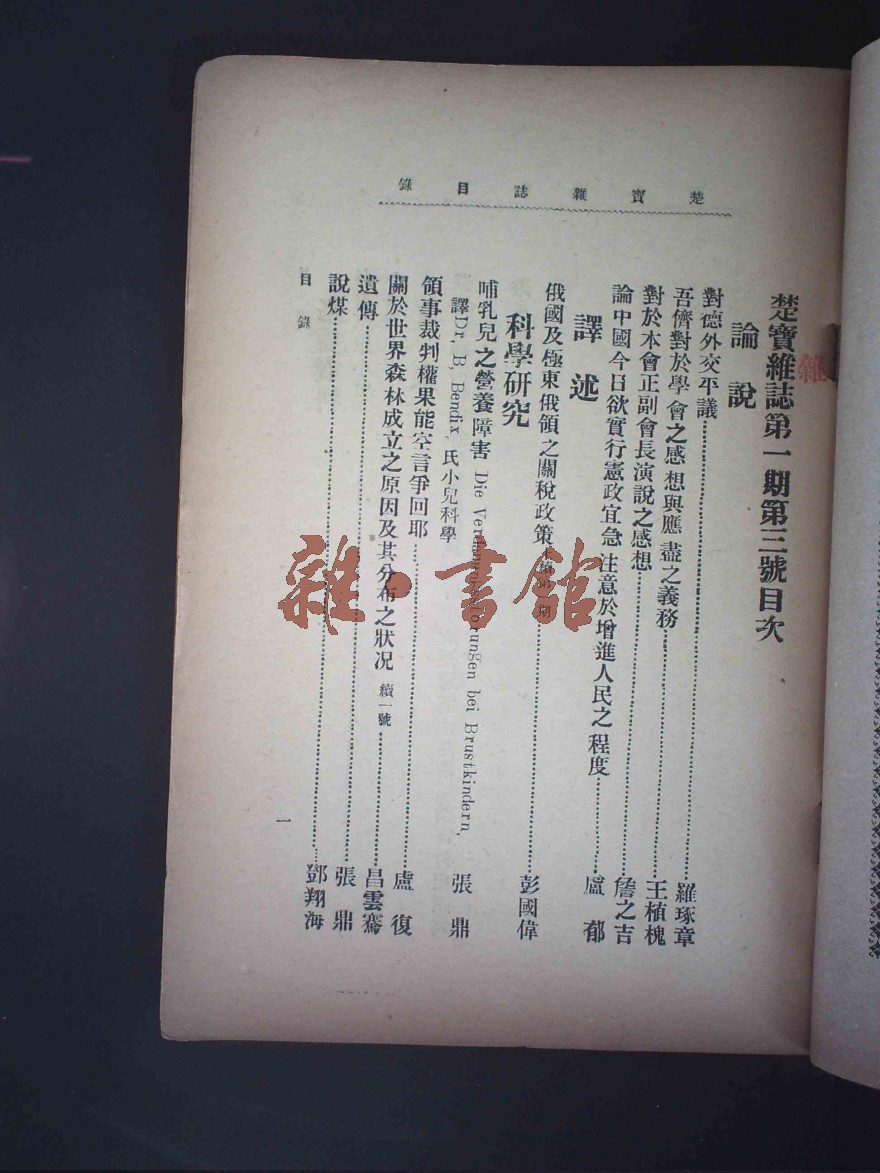 楚寶雜誌目錄
楚寶雜誌第一期第三號目次
論說
對德外交平議……羅琢章
吾儕對於學會之感想與應盡之義務……王植槐
對於本會正副會長演說之感想……詹之吉
論中國今日欲實行憲政宜急注意於增進人民之程度……盧郁
譯述
俄國及極東俄領之關稅政策 彭國偉
科學研究
哺乳兒之營養障害 Die bei Brustkindern, 張鼎
譯Dr. B. Bendix 氏小兒科學
領事裁判權果能空言爭回耶……盧復
關於世界森林成立之原因及其分布之狀況 續一號……昌雲騫
遺傳……張鼎
說煤……鄧翔海
目錄
一
雜·書館
雜